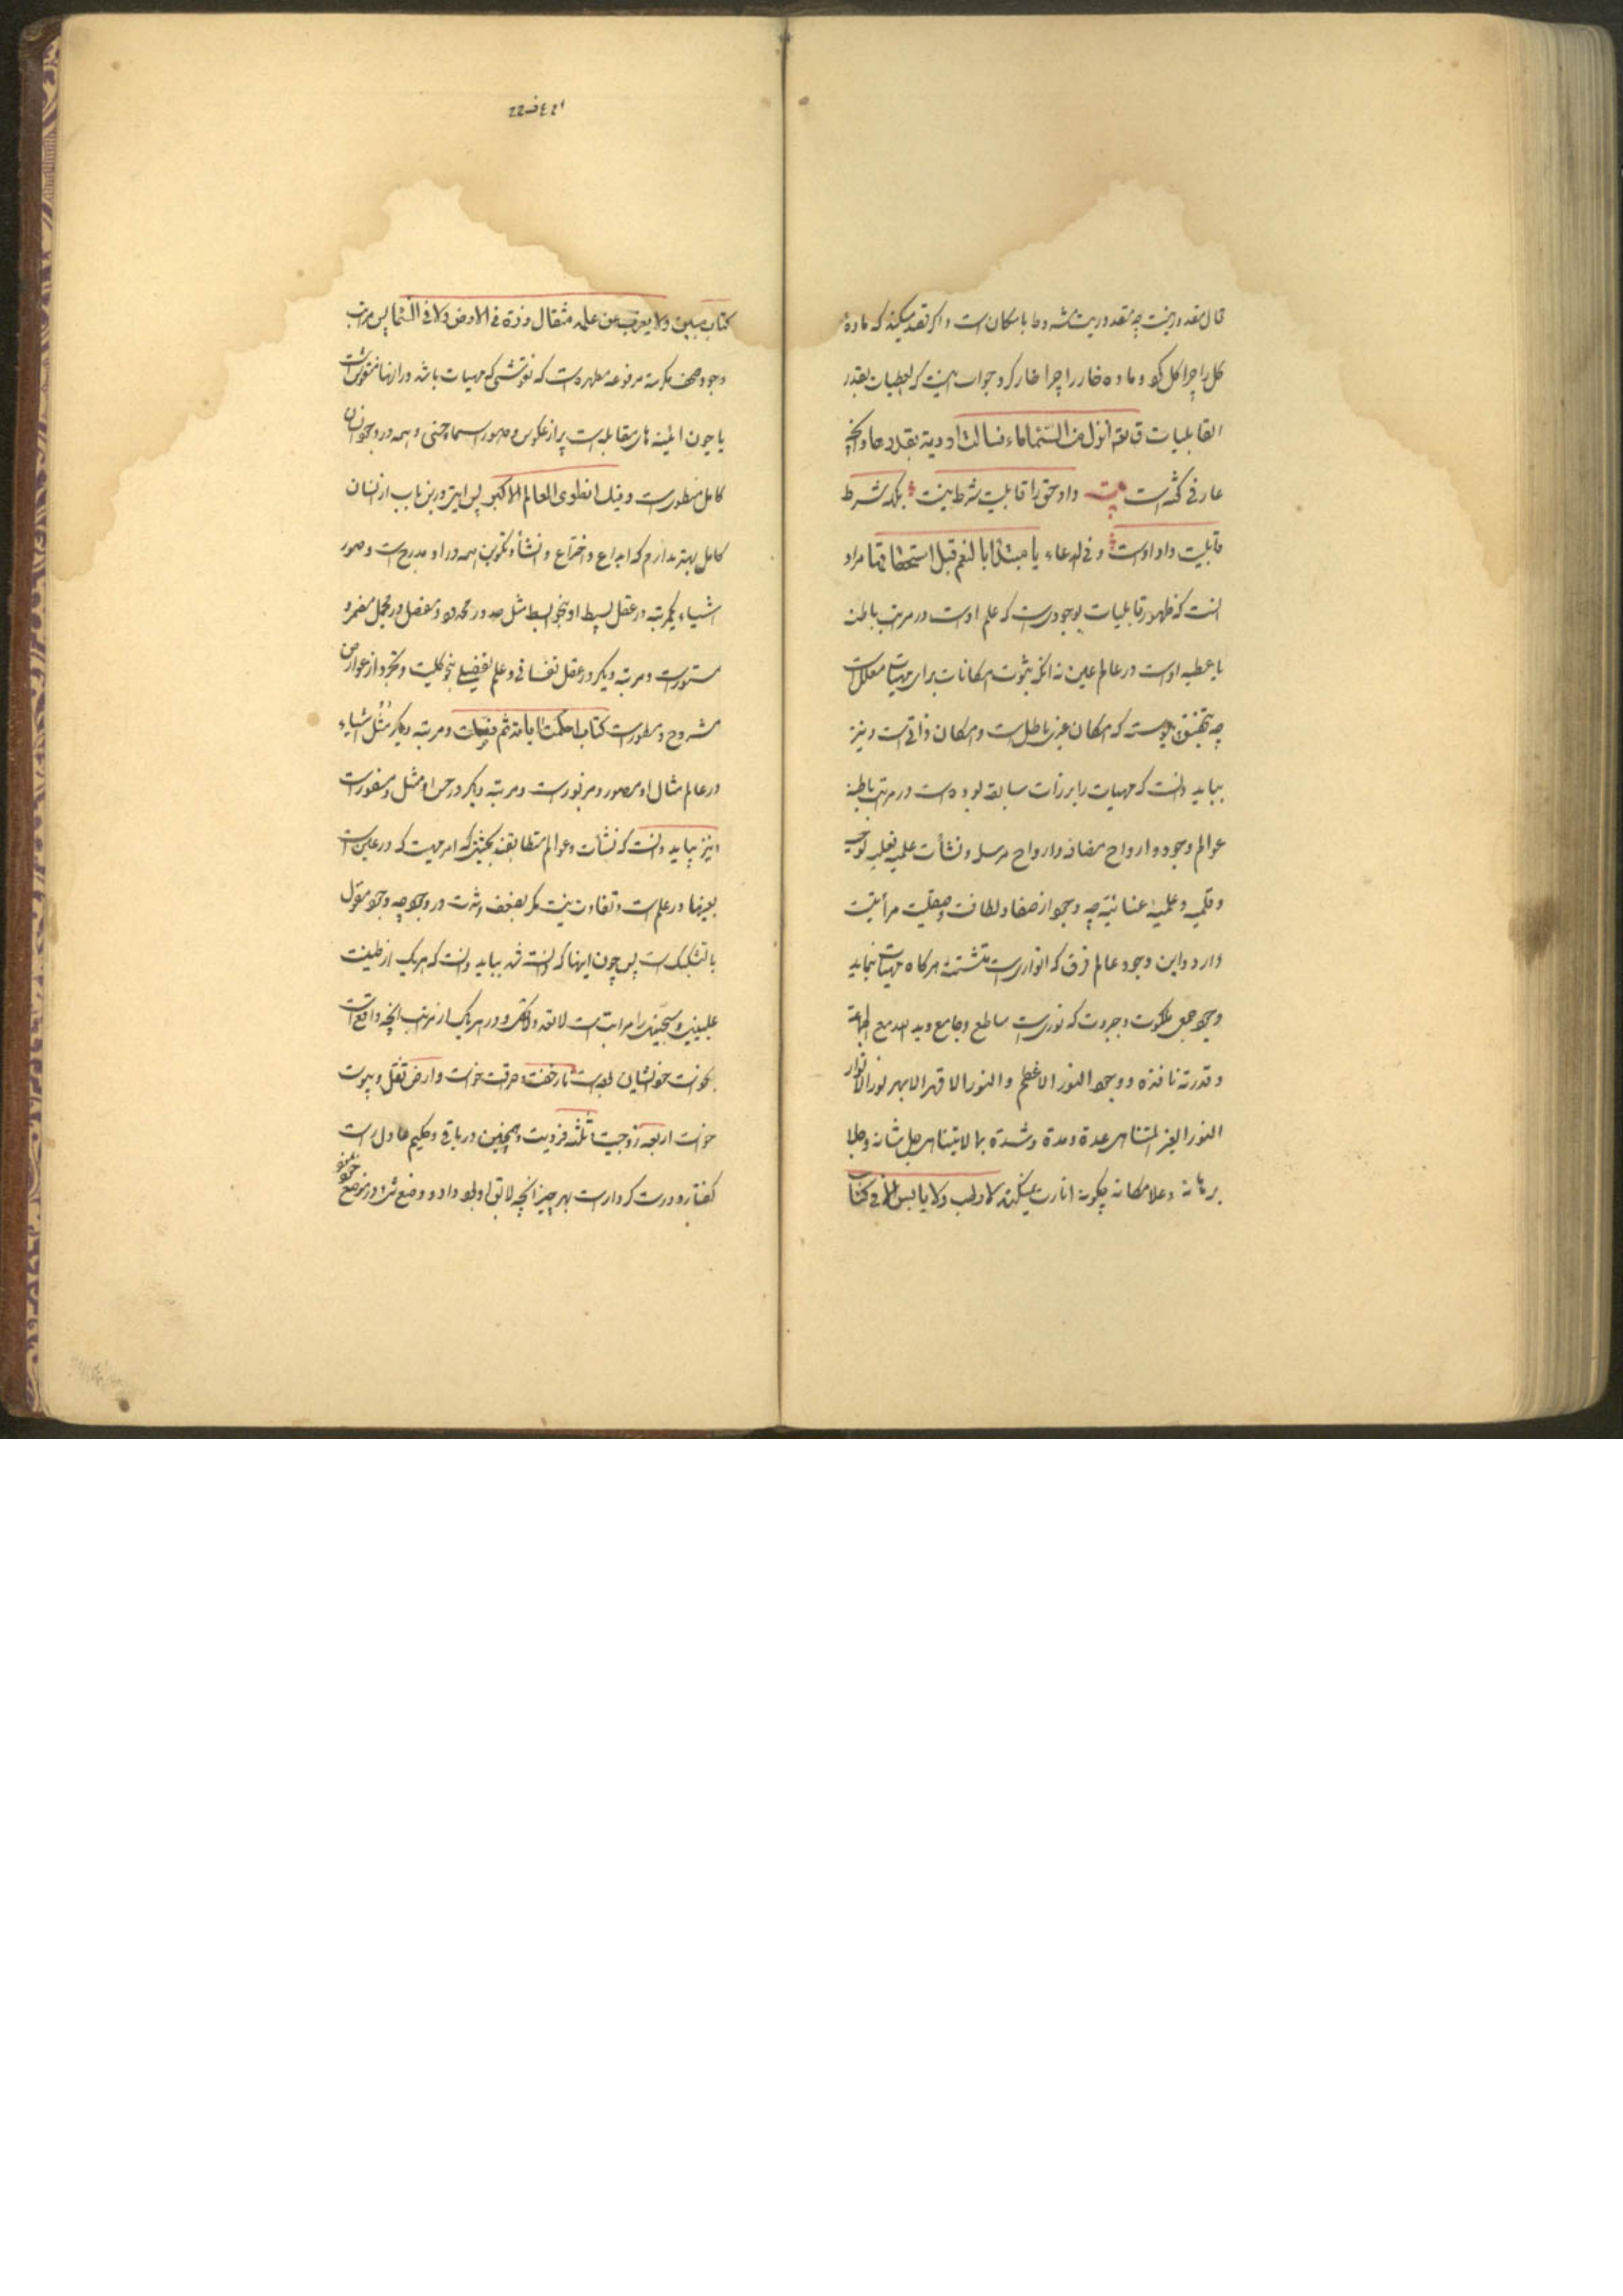 قال مقدور نیست چه مقدوریت مشروط بامکان است و اگر تعدد میکند که ماده
کل را چرا کل کرد و ماده خار را چرا خار کرد جواب اینست که العطیات بقدر
القابلیات قوله انزل من السماء ماء فسالت اودیة بقدرها و آنچه
عارفی گفته است بیت داد حق را قابلیت شرط نیست بلکه شرط
قابلیت داد اوست و فی الدعاء یا مبتدئا بالنعم قبل استحقاقها مراد
آنست که ظهور قابلیات بوجودیست که علم اوست در مرتبه باطن
یا عطیه اوست در عالم عین نه آنکه ثبوت امکانات برای مهیات معللست
چه بتحقیق پیوسته که امکان غیری باطل است و امکان ذاتی است و نیز
بباید دانست که مهیات را برزات سابقه بوده است در مراتب باطنه
عوالم وجود و ارواح مضافه و ارواح مرسله و نشأت علمیه فعلیه لوحیه
و قلمیه و علمیه عنائیه چه وجود از صفا و لطافت و صقلیت مرآتیت
دارد و این وجود عالم فرق که انواریست متشتته هرگاه مهیات بنماید
وجود جمعی ملکوت و جبروت که نوریست ساطع و جامع و ید الله مع الجماعة
و قدرته نافذه و وجود النور الاعظم و النور الاقهر الابهر نور الانوار
النور الغیر المتناهی عدة و مدة و شدة بما لایتناهی جل شانه و جلا
برهانه و علا مکانه چگونه انارت نمیکند لا رطب و لا یابس الا فی کتاب
۲۲ ف ٤٢١
کتاب مبین و لا یعزب عن علمه مثقال ذرة فی الارض و لا فی السماء پس مراتب
وجود صحف مکرمة مرفوعه مطهره است که نقوشی که مهیات باشد در آنها منقوش است
یا چون آیینه های مقابله است پر از عکوس و صور اسماء حسنی و همه در وجود انسان
کامل منطوی است و فیک انطوی العالم الاکبر پس آیتی در این باب از انسان
کامل بهتر نداریم که ابداع و اختراع و انشاء و تکوین همه در او مدرج است و صور
اشیاء یکمرتبه در عقل بسیط او بنحو بسیط مثل صدور در محدود و مفصل در مجمل مضمر و
مستور است و مرتبه دیگر در عقل نفسانی و علم تفصیلی بنحو کلیت و تجرد از عوارض
مشروح و مسطور است کتاب احکمت ایاته ثم فصلت و مرتبه دیگر مثل اشیاء
در عالم مثال او مصور و مزبور است و مرتبه دیگر در حس او ممثل و مسفور است
و نیز بباید دانست که نشأت و عوالم متطابقند بحیثی که امر مهیت که در عین است
بعینها در علم است و تفاوت نیست مگر بضعف و شدت در وجود چه وجود مقول
بالتشکیک است پس چون اینها که دانسته شد بباید دانست که هریک از طینت
علیین و سجین را مراتب است لاتعد و لاتحصی و در هر یک از مراتب آنچه واقع است
بکونت خواستشان بوده است نار خفت و حرقت خواست و ارض ثقل و یبوست
خواست اربعه زوجیت ثلثه فردیت و همچنین در باقی و حکیم عادل راست
گفتار و درست کردار است بهر چیز آنچه لایق او بود داد و وضع شیء در موضع خود نمود